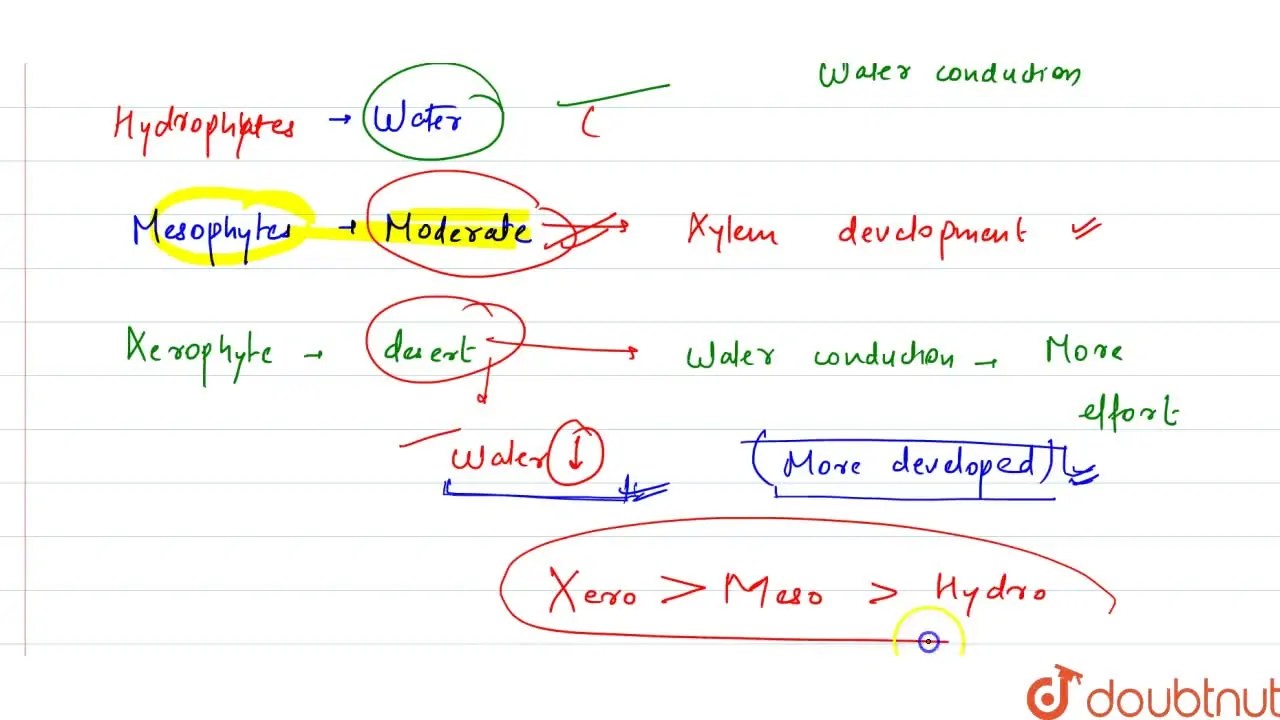 Water conduction
Hydrophytes → Water (
Mesophytes → Moderate → Xylem development
Xerophyte → desert → Water conduction → More
effort
Water ↓ (More developed)
Xero > Meso > Hydro
doubtnut